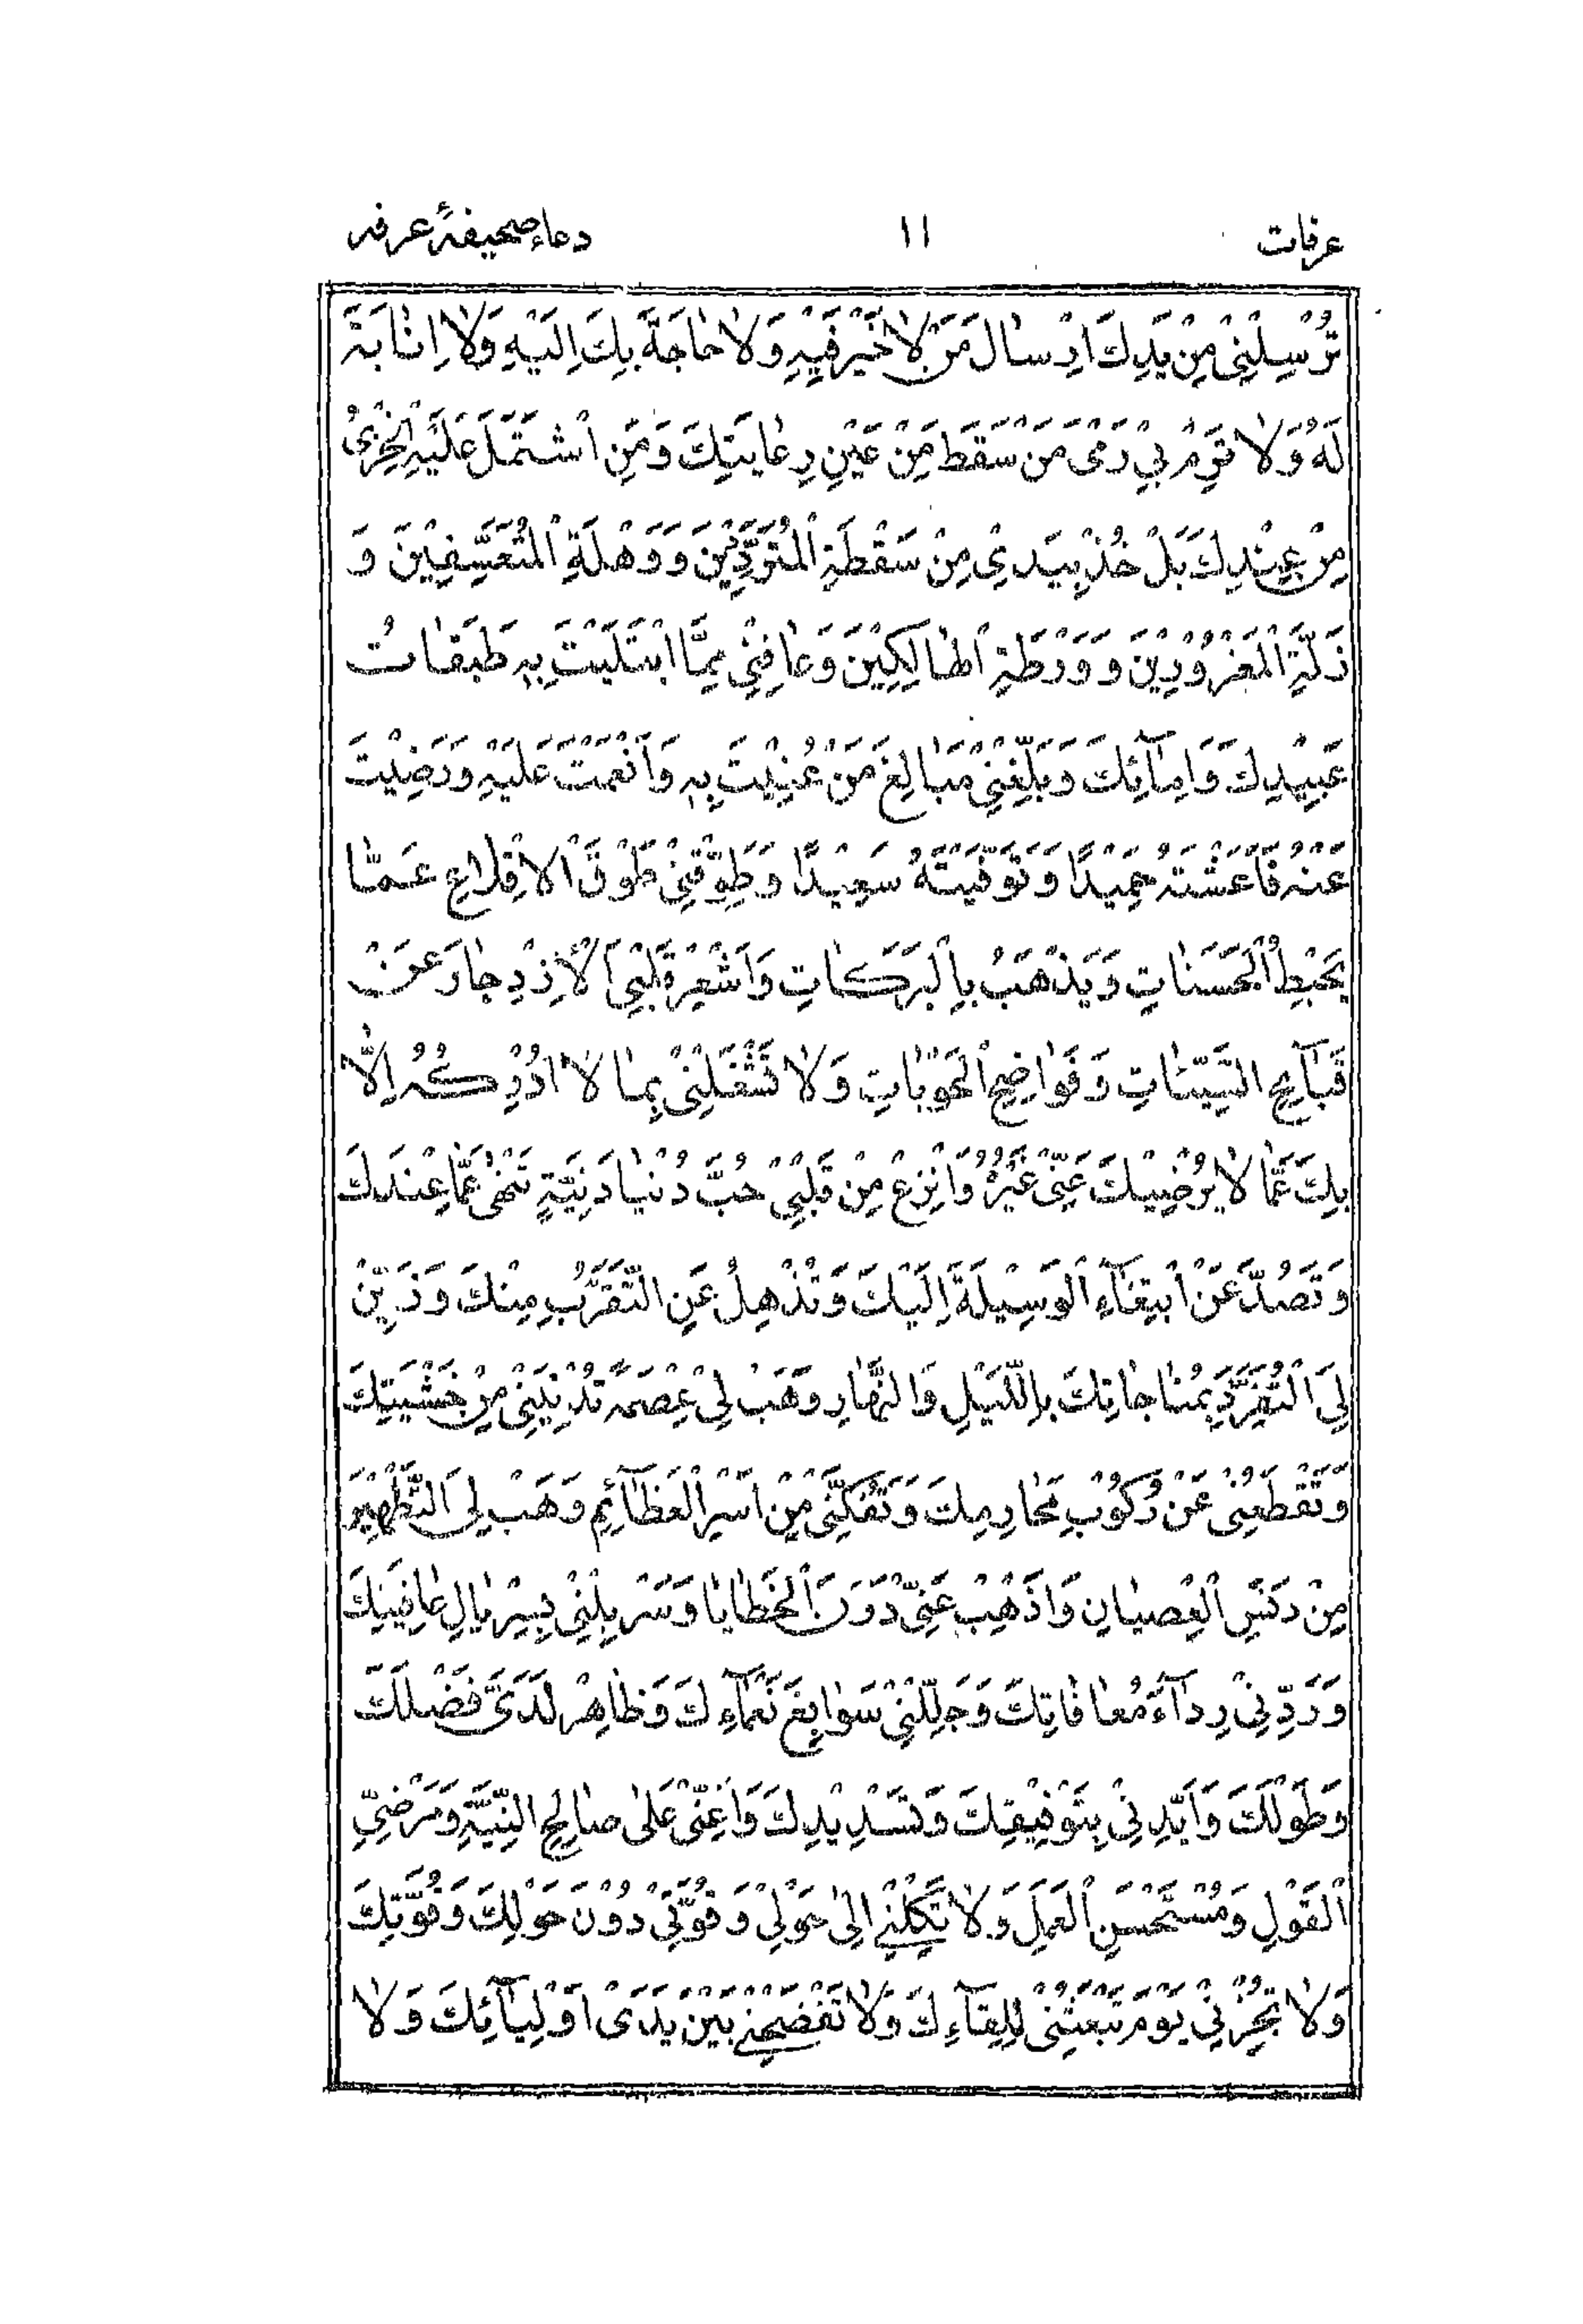 عرفات ١١ دعاء صحیفۂ عرفہ
تُرْسِلْنِیْ مِنْ یَدِكَ اِرْسَالَ مَنْ لَا خَیْرَ فِیْهِ وَلَا حَاجَةَ بِكَ اِلَیْهِ وَلَا اِنَابَةَ
لَهُ وَلَا تَرْمِ بِیْ رَمْیَ مَنْ سَقَطَ مِنْ عَیْنِ رِعَایَتِكَ وَمَنِ اشْتَمَلَ عَلَیْهِ الْخِزْیُ
مِنْ عِنْدِكَ بَلْ خُذْ بِیَدِیْ مِنْ سَقْطَةِ الْمُتَرَدِّیْنَ وَوَهْلَةِ الْمُتَعَسِّفِیْنَ وَ
زَلَّةِ الْمَغْرُوْرِیْنَ وَوَرْطَةِ الْهَالِكِیْنَ وَعَافِنِیْ مِمَّا ابْتَلَیْتَ بِهٖ طَبَقَاتِ
عَبِیْدِكَ وَاِمَآئِكَ وَبَلِّغْنِیْ مَبَالِغَ مَنْ عُنِیْتَ بِهٖ وَاَنْعَمْتَ عَلَیْهِ وَرَضِیْتَ
عَنْهُ فَاَعَشْتَهُ حَمِیْدًا وَتَوَفَّیْتَهُ سَعِیْدًا وَطَوِّقْنِیْ طَوْقَ الْاِقْلَاعِ عَمَّا
یُحْبِطُ الْحَسَنَاتِ وَیَذْهَبُ بِالْبَرَكَاتِ وَاَشْعِرْ قَلْبِیَ الْاِزْدِجَارَ عَنْ
قَبَآئِحِ السَّیِّئَاتِ وَفَوَاضِحِ الْحَوْبَاتِ وَلَا تَشْغَلْنِیْ بِمَا لَا اُدْرِكُهُ اِلَّا
بِكَ عَمَّا لَا یُرْضِیْكَ عَنِّیْ غَیْرُهُ وَانْزِعْ مِنْ قَلْبِیْ حُبَّ دُنْیَا دَنِیَّةٍ تَنْهٰی عَمَّا عِنْدَكَ
وَتَصُدُّ عَنْ ابْتِغَآءِ الْوَسِیْلَةِ اِلَیْكَ وَتُذْهِلُ عَنِ التَّقَرُّبِ مِنْكَ وَزَیِّنْ
لِیَ التَّفَرُّدَ بِمُنَاجَاتِكَ بِاللَّیْلِ وَالنَّهَارِ وَهَبْ لِیْ عِصْمَةً تُدْنِیْنِیْ مِنْ خَشْیَتِكَ
وَتَقْطَعُنِیْ عَنْ رُكُوْبِ مَحَارِمِكَ وَتَفُكَّنِیْ مِنْ اَسْرِ الْعَظَآئِمِ وَهَبْ لِیَ التَّطْهِیْرَ
مِنْ دَنَسِ الْعِصْیَانِ وَاَذْهِبْ عَنِّیْ دَرَنَ الْخَطَایَا وَسَرْبِلْنِیْ بِسِرْبَالِ عَافِیَتِكَ
وَرَدِّنِیْ رِدَآءَ مُعَافَاتِكَ وَجَلِّلْنِیْ سَوَابِغَ نَعْمَآءِكَ وَظَاهِرْ لَدَیَّ فَضْلَكَ
وَطَوْلَكَ وَاَیِّدْنِیْ بِتَوْفِیْقِكَ وَتَسْدِیْدِكَ وَاَعِنِّیْ عَلٰی صَالِحِ النِّیَّةِ وَمَرْضِیِّ
الْقَوْلِ وَمُسْتَحْسَنِ الْعَمَلِ وَلَا تَكِلْنِیْ اِلٰی حَوْلِیْ وَقُوَّتِیْ دُوْنَ حَوْلِكَ وَقُوَّتِكَ
وَلَا تُخْزِنِیْ یَوْمَ تَبْعَثُنِیْ لِلِقَآءِكَ وَلَا تَفْضَحْنِیْ بَیْنَ یَدَیْ اَوْلِیَآئِكَ وَلَا